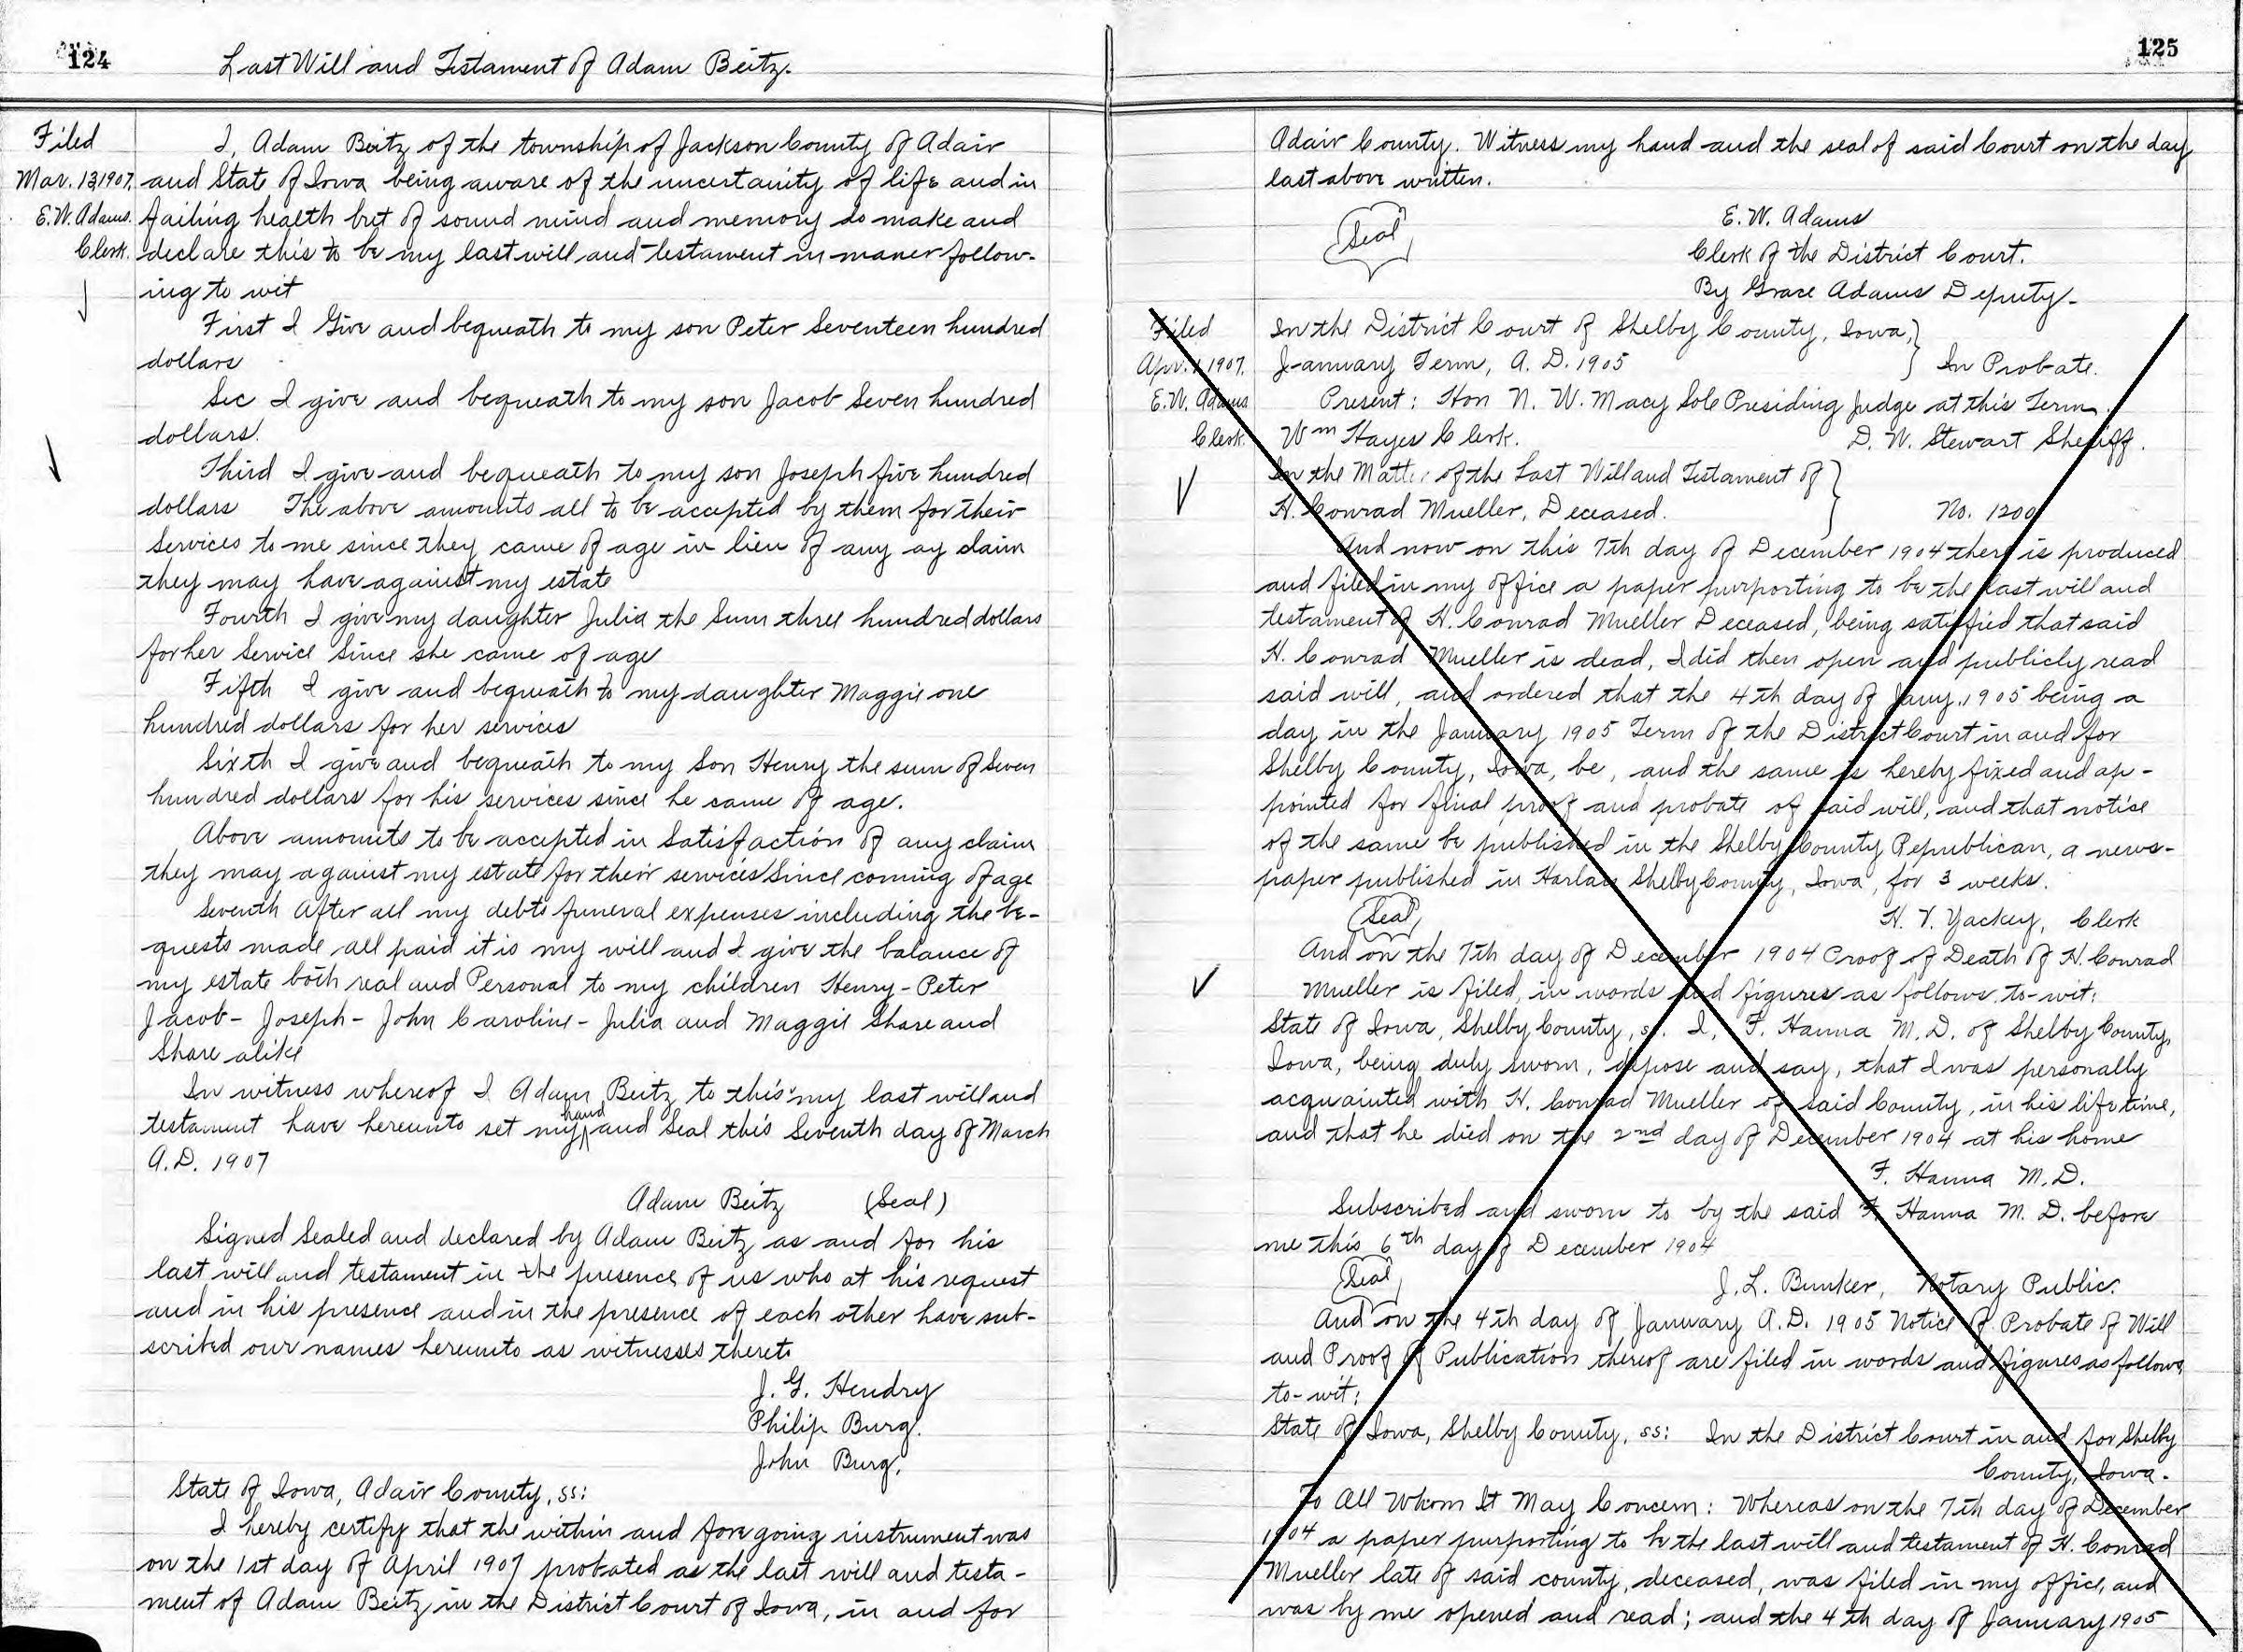 124
Last Will and Testament of Adam Beitz.
Filed
Mar. 13, 1907,
E.W. Adams.
Clerk.
I, Adam Beitz of the township of Jackson County of Adair
and State of Iowa being aware of the uncertainity of life and in
failing health but of sound mind and memory do make and
declare this to be my last will and testament in maner follow-
ing to wit
First I Give and bequeath to my son Peter Seventeen hundred
dollars
Sec I give and bequeath to my son Jacob Seven hundred
dollars.
Third I give and bequeath to my son Joseph five hundred
dollars The above amounts all to be accepted by them for their
Services to me since they came of age in lieu of any ay claim
they may have against my estate
Fourth I give my daughter Julia the Sum three hundred dollars
for her Service Since she came of age
Fifth I give and bequeath to my daughter Maggie one
hundred dollars for her services
Sixth I give and bequeath to my Son Henry the sum of Seven
hundred dollars for his services since he came of age.
Above amounts to be accepted in Satisfaction of any claim
they may against my estate for their services Since coming of age
Seventh After all my debts funeral expenses including the be-
quests made all paid it is my will and I give the balance of
my estate both real and Personal to my children Henry - Peter
Jacob - Joseph - John Caroline - Julia and Maggie Share and
Share alike
In witness whereof I Adam Beitz to this my last will and
testament have hereunto set my hand and Seal this Seventh day of March
A.D. 1907
Adam Beitz (Seal)
Signed Sealed and declared by Adam Beitz as and for his
last will and testament in the presence of us who at his request
and in his presence and in the presence of each other have sub-
scribed our names hereunto as witnesses thereto
J. G. Hendry
Philip Burg.
John Burg.
State of Iowa, Adair County, ss:
I hereby certify that the within and foregoing instrument was
on the 1st day of April 1907 probated as the last will and testa-
ment of Adam Beitz in the District Court of Iowa, in and for
125
Adair County. Witness my hand and the seal of said Court on the day
last above written.
Seal
E. W. Adams
Clerk of the District Court.
By Grace Adams Deputy-
Filed
Apr. 1, 1907.
E.W. Adams
Clerk.
In the District Court of Shelby County, Iowa,
January Term, A. D. 1905 In Probate.
Present: Hon N. W. Macy Sole Presiding Judge at this Term.
Wm Hayes Clerk. D. N. Stewart Sheriff.
In the Matter of the Last Will and Testament of
H. Conrad Mueller, Deceased. No. 1200
And now on this 7th day of December 1904 there is produced
and filed in my office a paper purporting to be the last will and
testament of H. Conrad Mueller Deceased, being satisfied that said
H. Conrad Mueller is dead, I did then open and publicly read
said will, and ordered that the 4th day of Jany. 1905 being a
day in the January 1905 Term of the District Court in and for
Shelby County, Iowa, be, and the same is hereby fixed and ap-
pointed for final proof and probate of said will, and that notice
of the same be published in the Shelby County Republican, a news-
paper published in Harlan Shelby County, Iowa, for 3 weeks.
Seal
H. V. Yackey, Clerk
And on the 7th day of December 1904 Proof of Death of H. Conrad
Mueller is filed, in words and figures as follows, to-wit:
State of Iowa, Shelby County, ss. I, F. Hanna M. D. of Shelby County,
Iowa, being duly sworn, depose and say, that I was personally
acquainted with H. Conrad Mueller of said County, in his lifetime,
and that he died on the 2nd day of December 1904 at his home
F. Hanna M. D.
Subscribed and sworn to by the said F. Hanna M. D. before
me this 6th day of December 1904
Seal
J. L. Bunker, Notary Public.
And on the 4th day of January A.D. 1905 Notice of Probate of Will
and Proof of Publication thereof are filed in words and figures as follows,
to-wit:
State of Iowa, Shelby County, ss: In the District Court in and for Shelby
County, Iowa.
To All Whom It May Concern: Whereas on the 7th day of December
1904 a paper purporting to be the last will and testament of H. Conrad
Mueller late of said county, deceased, was filed in my office, and
was by me opened and read; and the 4th day of January 1905